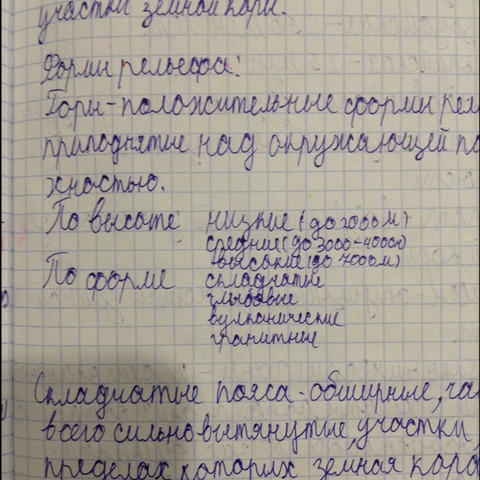 участки земной коры.
Формы рельефа:
Горы - положительные формы рел
приподнятые над окружающей по
хностью.
По высоте низкие (до 2000м)
средние (до 3000-4000м)
высокие (до 7000м)
По форме складчатые
глыбовые
вулканические
гранитные
Складчатые пояса - обширные, ча
всего сильно вытянутые, участки,
пределах которых земная кора